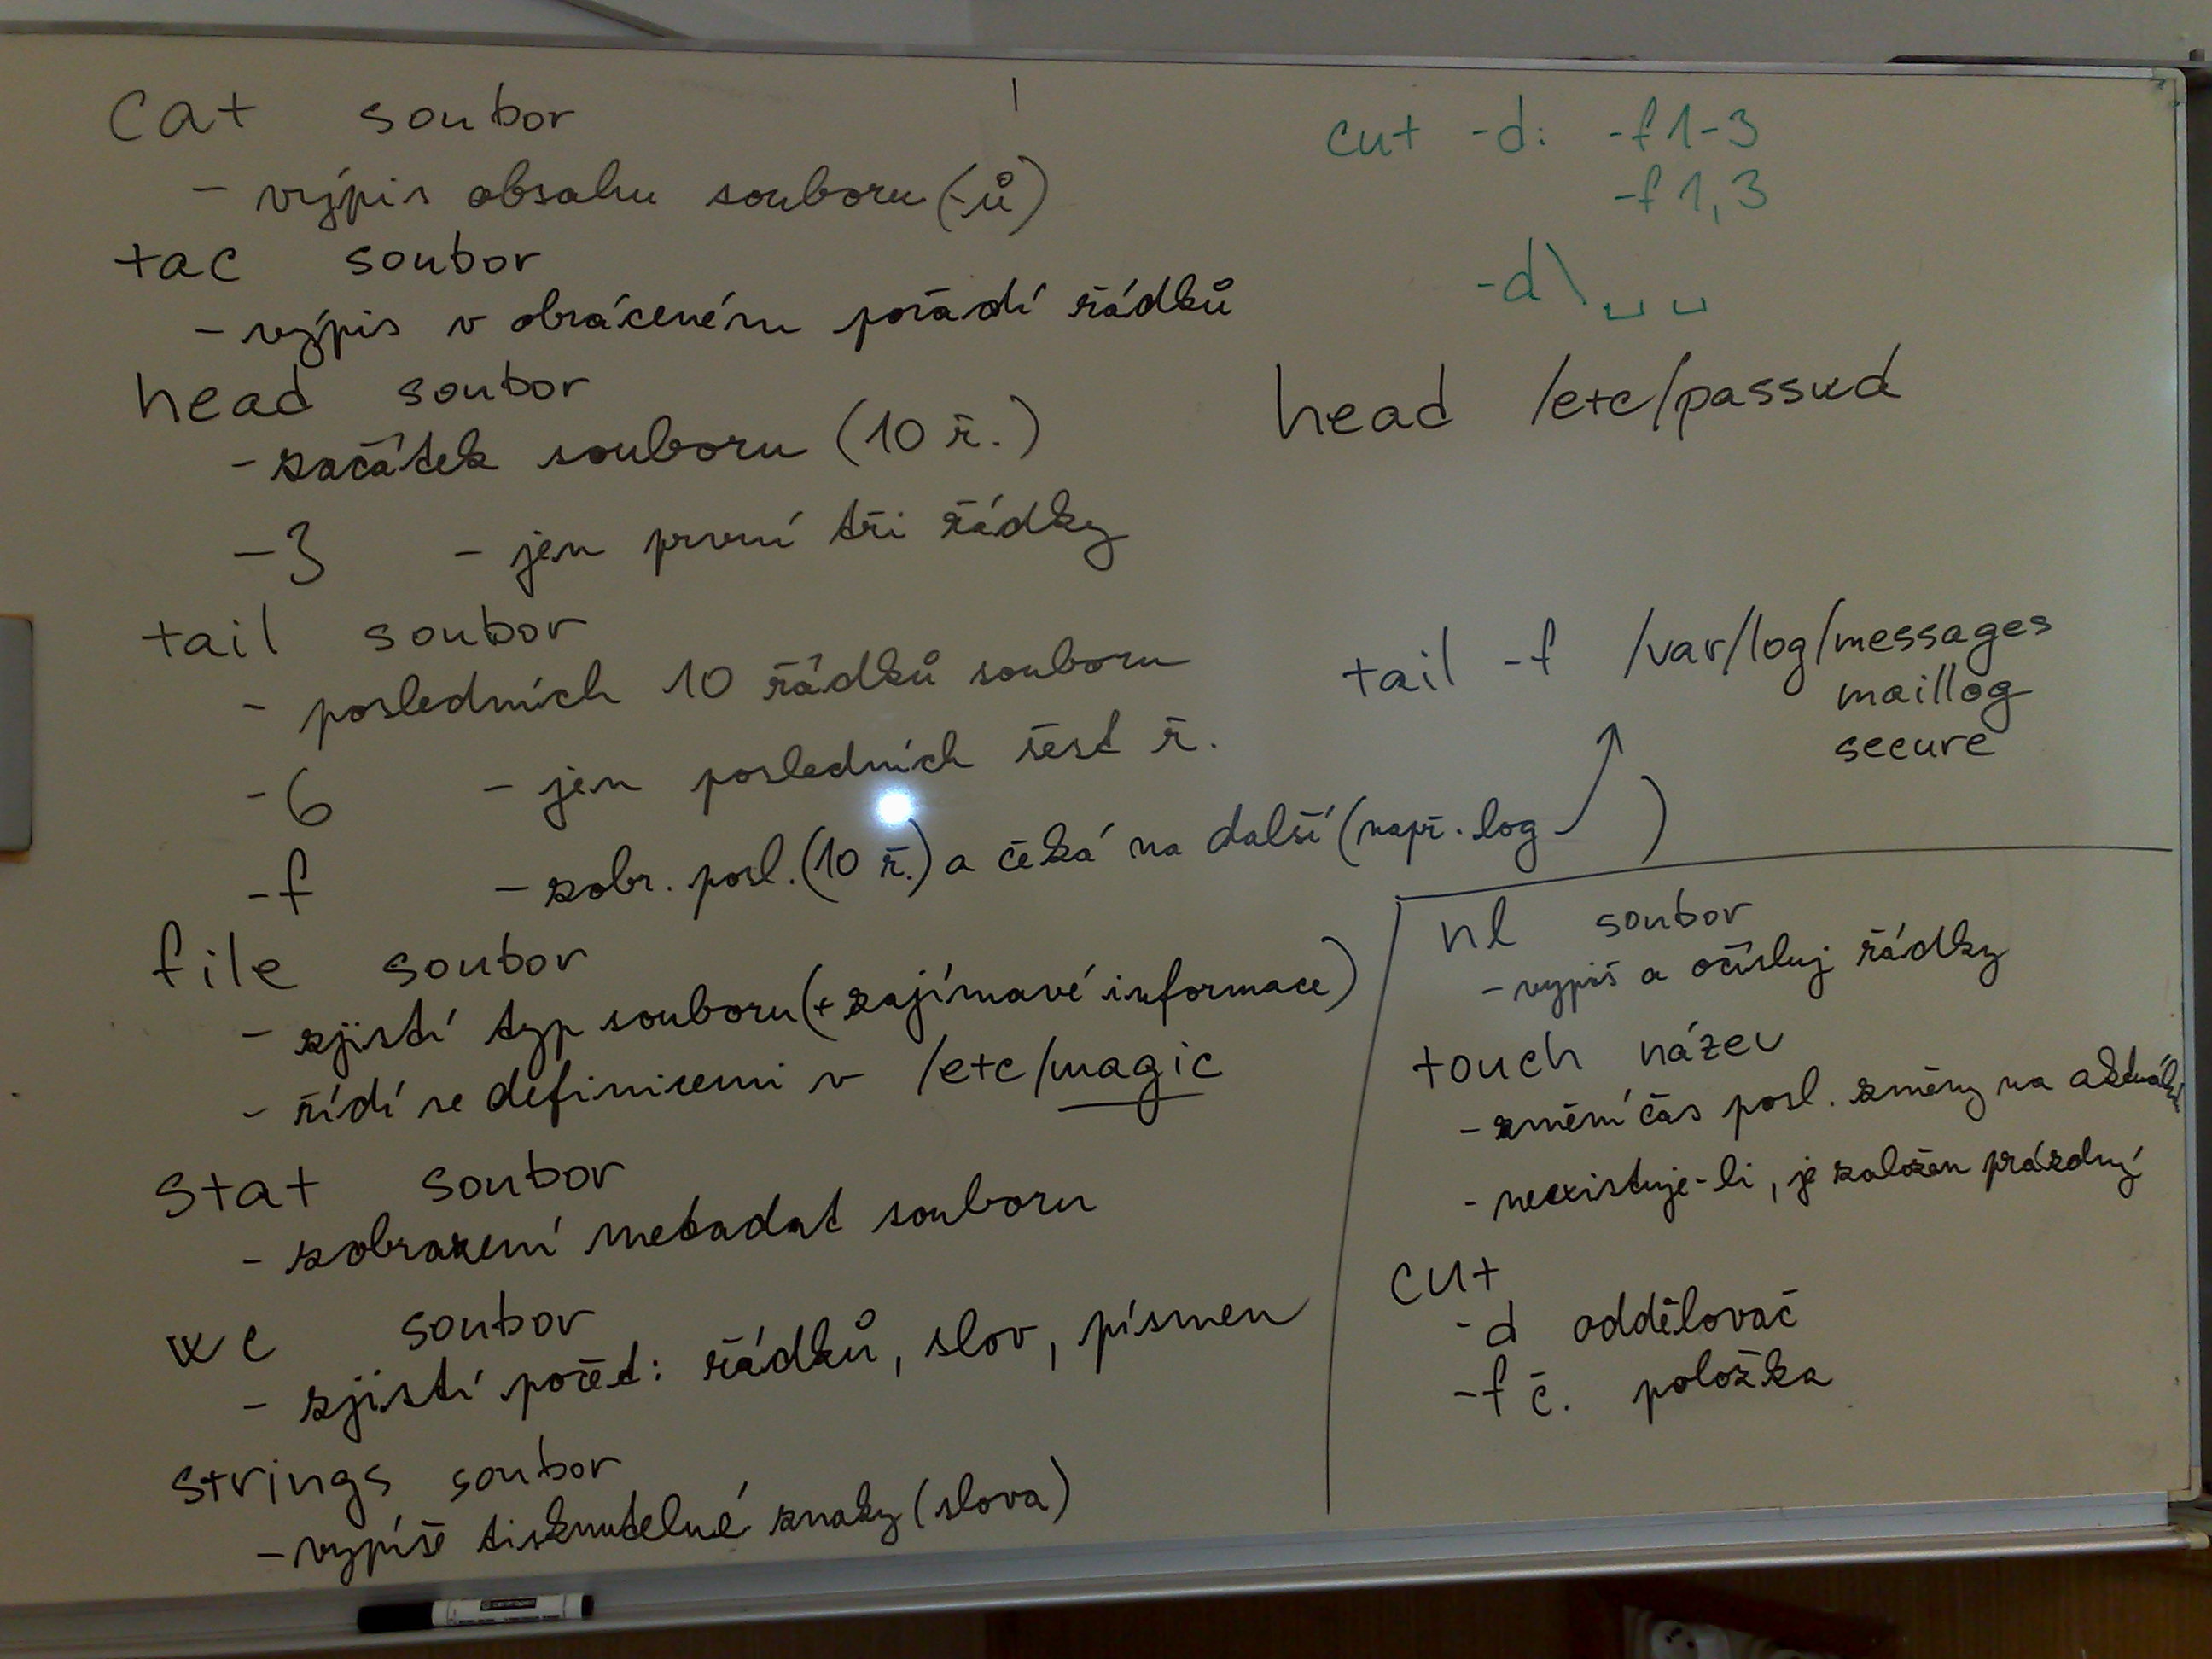 cat soubor
- výpis obsahu souboru (-ů)
tac soubor
- výpis v obráceném pořadí řádků
head soubor
- začátek souboru (10 ř.)
-3 - jen první tři řádky
tail soubor
- posledních 10 řádků souboru
-6 - jen posledních šest ř.
-f - zobr. posl. (10 ř.) a čeká na další (např. log )
file soubor
- zjistí typ souboru (+ zajímavé informace)
- řídí se definicemi v /etc/magic
stat soubor
- zobrazení metadat souboru
wc soubor
- zjistí počet: řádků, slov, písmen
strings soubor
- vypíše tisknutelné znaky (slova)
cut -d: -f1-3
-f1,3
-d\␣␣
head /etc/passwd
tail -f /var/log/messages
maillog
secure
nl soubor
- vypiš a očísluj řádky
touch název
- změní čas posl. změny na aktuální
- neexistuje-li, je založen prázdný
cut
-d oddělovač
-f č. položka